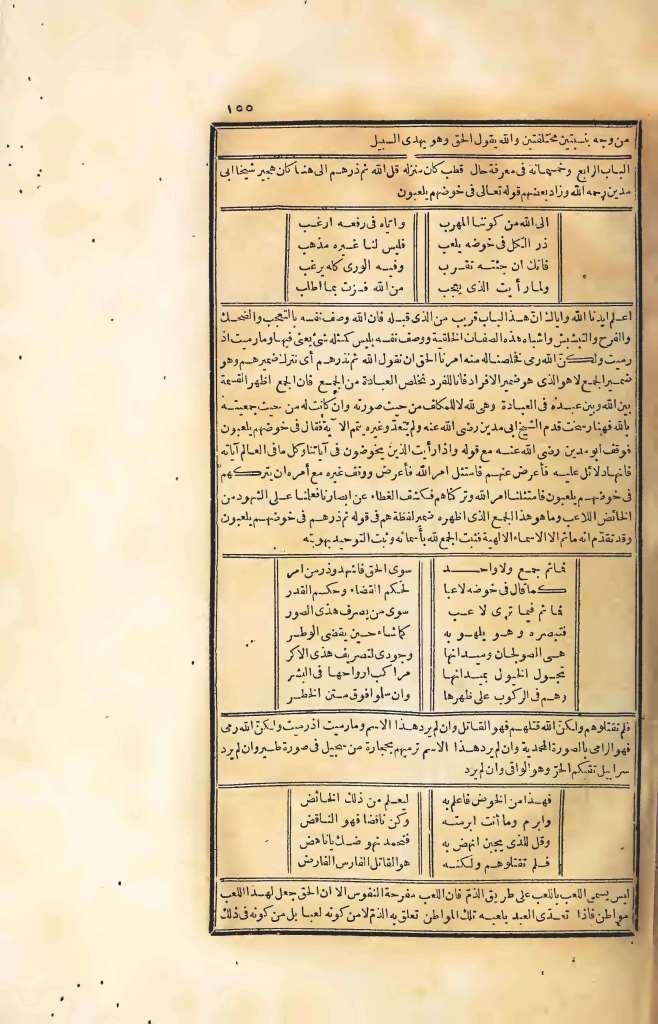 ١٥٥
من وجه بنسبتين مختلفتين والله يقول الحق وهو يهدى السبيل
الباب الرابع وخمسمائة فى معرفة حال قطب كان منزله قل الله ثم ذرهم الى هنا كان هجير شيخنا ابى
مدين رحمه الله وزاد بعضهم قوله تعالى فى خوضهم يلعبون
الى الله من كوننا المهرب واتاه فى رفعه ارغب
ذر الكل فى خوضه يلعب فليس لنا غيره مذهب
فانك ان جئته تقرب وفيه الورى كله يرغب
ولما رأيت الذى يحجب من الله فزت بما اطلب
اعلم ايدنا الله واياك ان هذا الباب قريب من الذى قبله فان الله وصف نفسه بالتعجب والضحك
والفرح والتبشبش واشباه هذه الصفات الخلقية ووصف نفسه بليس كمثله شئ يعنى فيها وما رميت اذ
رميت ولكن الله رمى فخلصناله منه امرنا الحق ان نقول الله ثم نذرهم أى نترك ضميرهم وهو
ضمير الجمع لا هو الذى هو ضمير الافراد فانا للفرد نخلص العبادة من الجمع فان الجمع اظهر القسمة
بين الله وبين عبده فى العبادة وهى لله لا للمكلف من حيث صورته وان كانت له من حيث جمعيته
بالله فهنا رسخت قدم الشيخ ابى مدين رضى الله عنه ولم يتعد وغيره يتم الآية فقال فى خوضهم يلعبون
فوقف ابو مدين رضى الله عنه مع قوله واذا رأيت الذين يخوضون فى آياتنا وكل ما فى العالم آياته
فانها دلائل عليه فأعرض عنهم فامتثل امر الله فأعرض ووقف غيره مع أمره ان يتركهم
فى خوضهم يلعبون فامتثلنا امر الله وتركناهم فكشف الغطاء عن ابصارنا فعلمنا على الشهود من
الخائض اللاعب وما هو هذا الجمع الذى اظهره ضمير لفظة هم فى قوله ثم ذرهم فى خوضهم يلعبون
وقد تقدم انه ما ثم الا الاسماء الالهية فثبت الجمع لله بأسمائه وثبت التوحيد بهويته
فما ثم جمع ولا واحد سوى الحق فاشهد وذر من امر
كما قال فى خوضه لاعبا لحكم القضاء وحكم القدر
فما ثم فيما ترى لاعب سوى من يصرف هذى الصور
فتبصره وهو يلهو به كما شاء حين يقضى الوطر
هى الصولجان وميدانها وجودى لتصريف هذى الاكر
تجول الخيول بميدانها مراكب ارواحها فى البشر
وهم فى الركوب على ظهرها وان سلوا فوق متن الخطر
فلم تقتلوهم ولكن الله قتلهم فهو القاتل وان لم يرد هذا الاسم وما رميت اذ رميت ولكن الله رمى
فهو الرامى بالصورة المحمدية وان لم يرد هذا الاسم ترميهم بحجارة من سجيل فى صورة طير وان لم يرد
سرابيل تقيكم الحر وهو الواقى وان لم يرد
فهذا من الخوض فاعلم به ليعلم من ذلك الخائض
وابرم وما أنت ابرمته وكن ناقضا فهو الناقض
وقل للذى يحبن انهض به فتحمد نهوضك يا ناهض
فلم تقتلوهم ولكنه هو القاتل الفارس الفارض
ليس يسمى اللعب باللعب على طريق الذم فان اللعب مفرحة النفوس الا ان الحق جعل لهذا اللعب
مواطن فاذا تعدى العبد بلعبه تلك المواطن تعلق به الذم لا من كونه لعبا بل من كونه فى ذلك